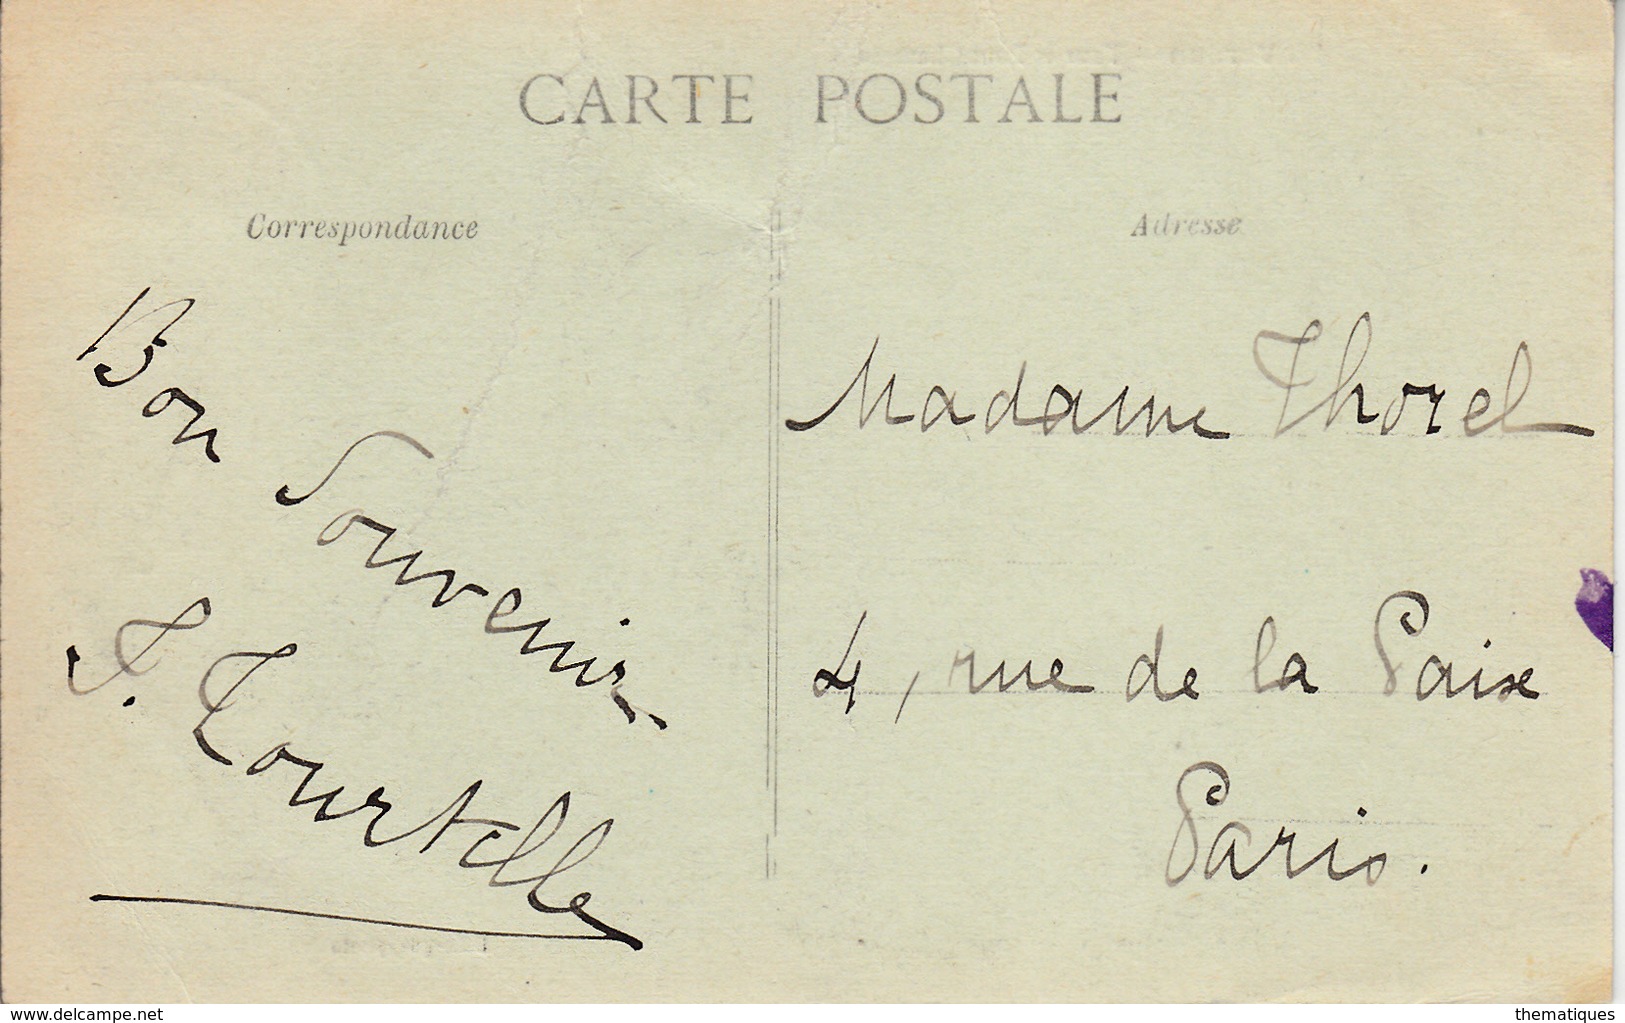 CARTE POSTALE
Correspondance
Bon
Souvenir
Tourtelle
Adresse
Madame Thorel
4, rue de la Paix
Paris.
delcampe.net
thematiques